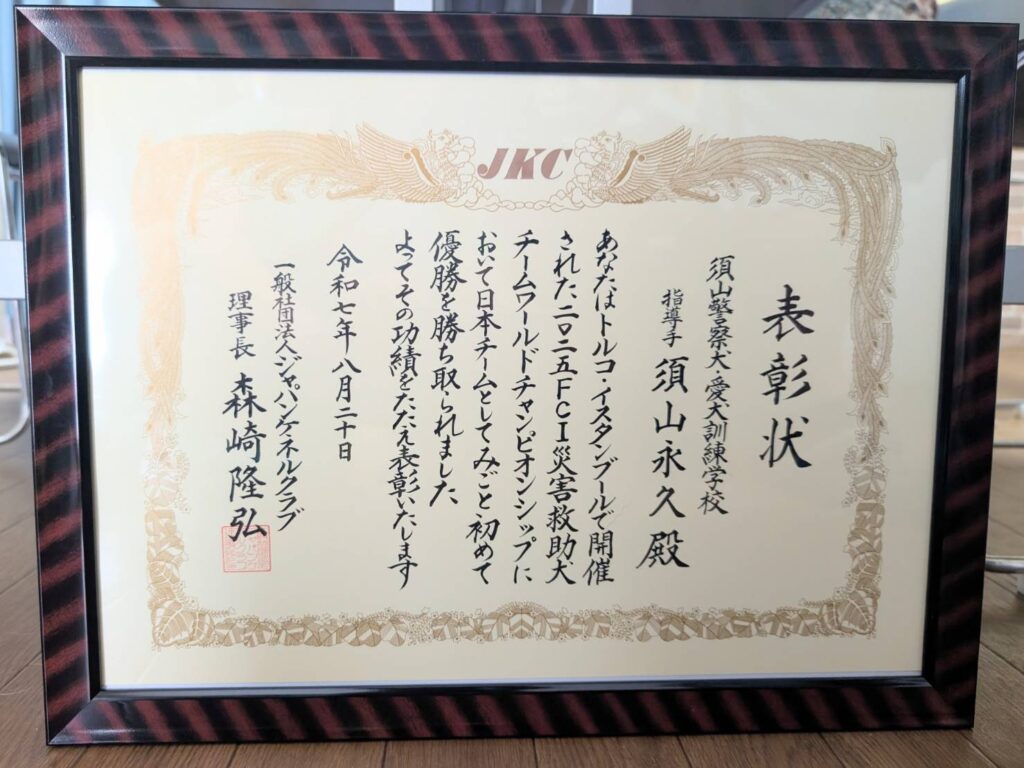 JKC
表彰状
須山警察犬・愛犬訓練学校
指導手 須山永久殿
あなたはトルコ・イスタンブールで開催
された二〇二五FCI災害救助犬
チームワールドチャンピオンシップに
おいて日本チームとしてみごと初めて
優勝を勝ち取られました
よってその功績をたたえ表彰いたします
令和七年八月二十日
一般社団法人ジャパンケネルクラブ
理事長 森崎隆弘